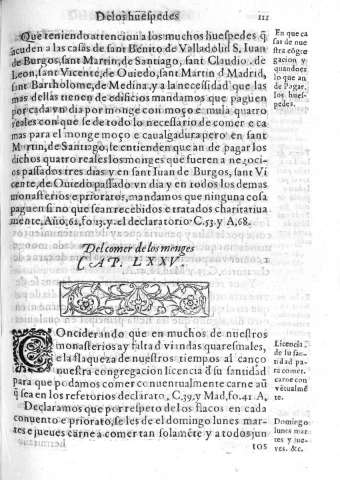 De los huespedes
111
Que teniendo attencion a los muchos huespedes q̃
acuden a las casas de sant Benito de Valladolid S, Iuan
de Burgos, sant Martin, de Santiago, sant Claudio. de
Leon, sant Vicente, de Ouiedo, sant Martin d Madrid,
sant Bartholome, de Medina, y a la necesidad que las
mas dellas tienẽ de edificios mandamos que paguen
por cada vn dia por monge con moço e mula quatro
reales con que se de todo lo necesario de comer e ca
mas para el monge moço e caualgadura pero en sant
Martin, de Santiago, se entienden que an de pagar los
dichos quatro reales los monges que fueren a negoci-
cios passados tres dias y en sant Iuan de Burgos, sant Vi
cente, de Ouiedo passado vn dia y en todos los demas
monasterios e prioratos, mandamos que ninguna cosa
paguen si no que sean recebidos e tratados charitatiua
mente, Año, 62, fo, 13. y el declaratorio C. 53. y A, 68.
En que ca
sas de nue
stra cõgre
gacion y
quando es
lo que an
de Pagar.
los hues-
pedes.
Del comer de los monges
CAP. LXXV.
1
COnciderando que en muchos de nuestros
monasterios ay falta d viandas quaresmales,
e la flaqueza de nuestros tiempos al canço
nuestra congregacion licencia d su santidad
para que podamos comer conuentualmente carne aũ
q̃ sea en los refetorios declarato, C. 39, y Mad, fo. 41 A,
Declaramos que por respeto de los flacos en cada
conuento e priorato, se les de el domingo lunes mar-
tes e jueues carne a comer tan solamẽte y a todos jun
tos
Licencia
de su san-
tidad pa-
ra comer.
carne con
vẽtualmẽ
te.
Domingo
lunes mar
tes y jue-
ves. &c.